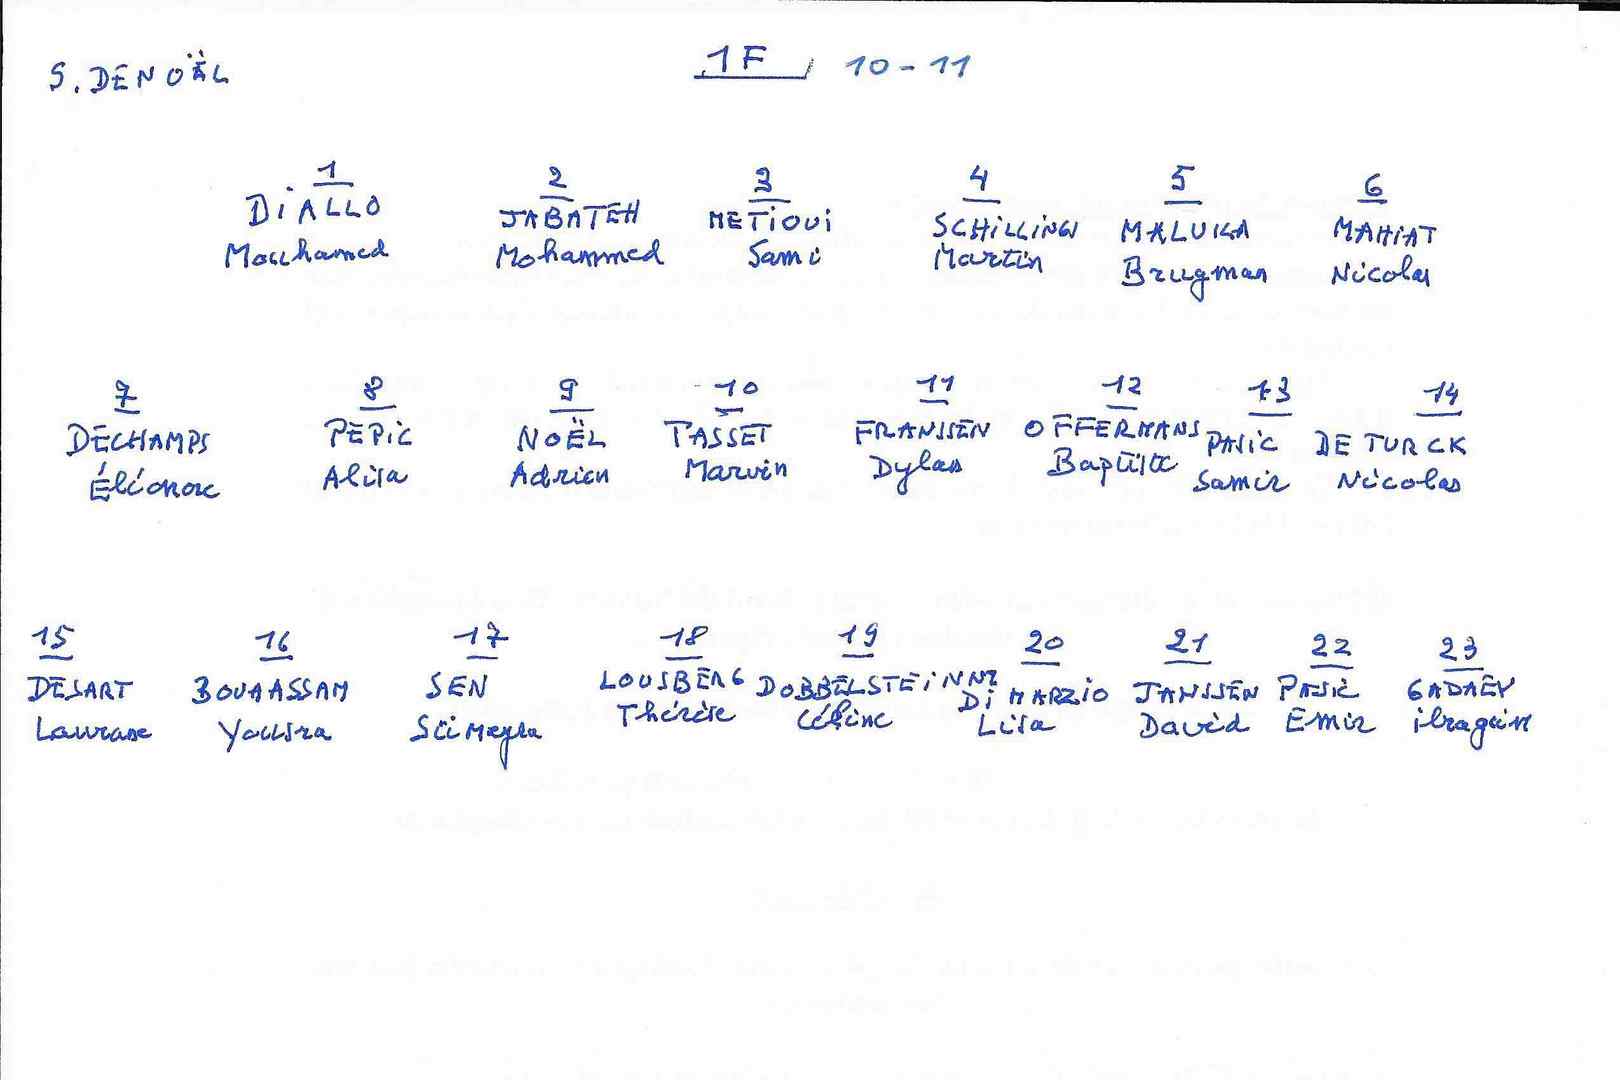 S. DENOËL 1F 10-11
1 2 3 4 5 6
DiALLO JABATEH METiOUi SCHiLLiNGS MALUKA MAHiAT
Mouhamed Mohammed Sami Martin Brugman Nicolas
7 8 9 10 11 12 13 14
DECHAMPS PEPiC NOËL TASSET FRANSSEN OFFERMANS PASiC DE TURCK
Éléonore Alisa Adrien Marvin Dylan Baptiste Samir Nicolas
15 16 17 18 19 20 21 22 23
DESART BOUAASSAM SEN LOUSBERG DOBBELSTEiNN Di MARZiO JANSSEN PASiC GADAEV
Laurane Yousra Thérèse Céline Lisa David Emir